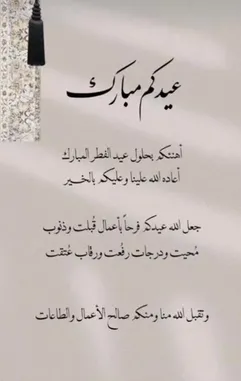 عيدكم مبارك
أهنئكم بحلول عيد الفطر المبارك
أعاده الله علينا وعليكم بالخير
جعل الله عيدكم فرحاً بأعمال قُبلت وذنوب
مُحيت ودرجات رفعت ورقاب عُتقت
وتقبل الله منا ومنكم صالح الأعمال والطاعات